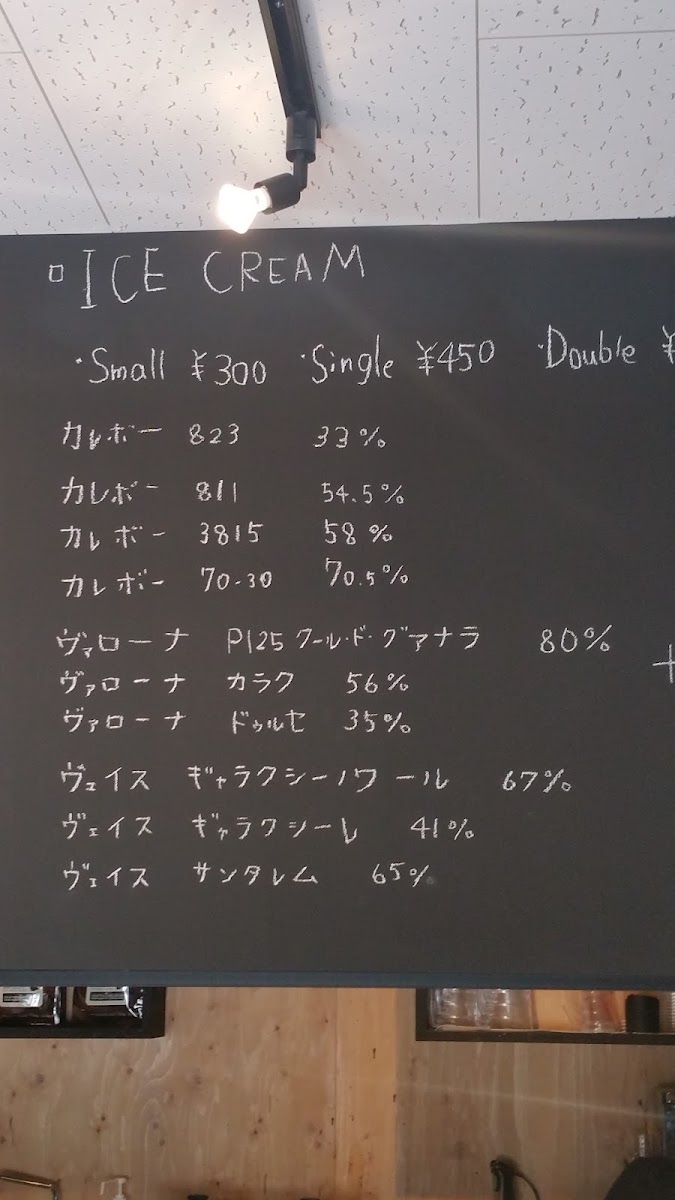 ICE CREAM
・Small ¥300 ・Single ¥450 ・Double ¥
カレボー 823 33%
カレボー 811 54.5%
カレボー 3815 58%
カレボー 70-30 70.5%
ヴァローナ P125 クール・ド・グアナラ 80%
ヴァローナ カラク 56%
ヴァローナ ドゥルセ 35%
ヴェイス ギャラクシーノワール 67%
ヴェイス ギャラクシーレ 41%
ヴェイス サンタレム 65%